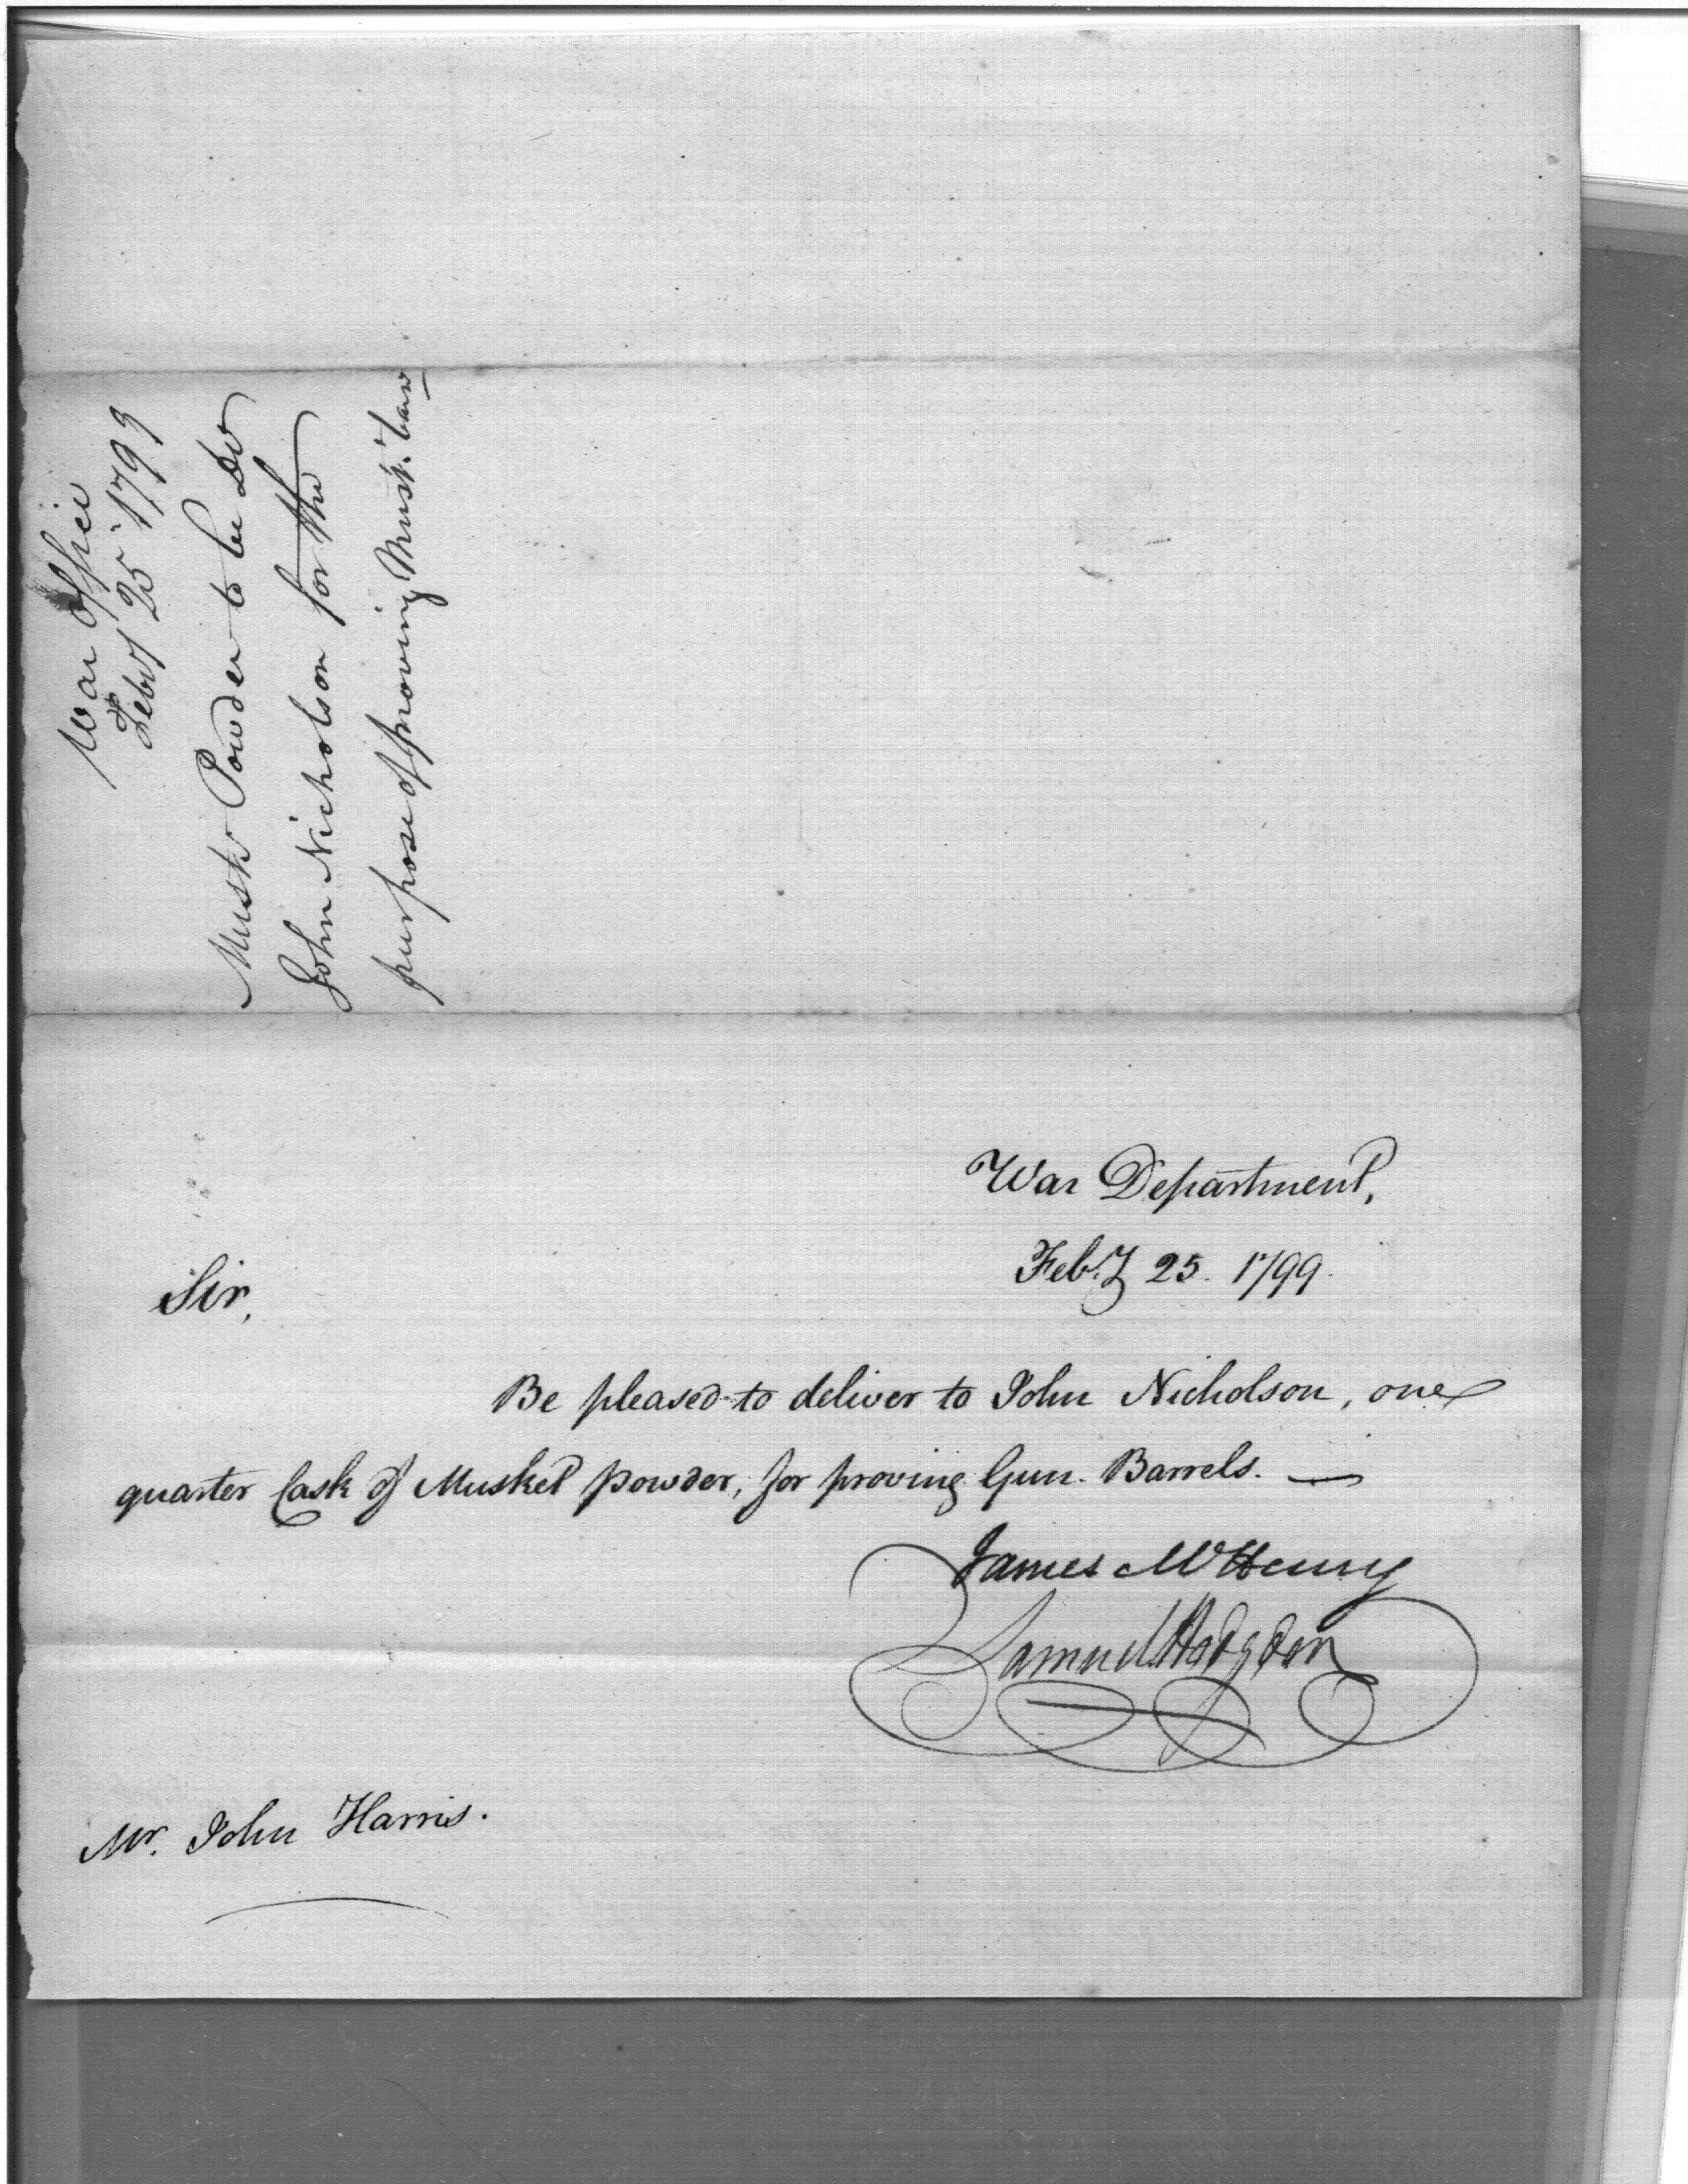 War Office
Feby 25 1799
Musk Powder to be DD
John Nicholson for the
purpose of proving Musk. barrs
War Department,
Feb.y 25. 1799.
Sir,
Be pleased to deliver to John Nicholson, one
quarter Cask of Musket powder, for proving Gun. Barrels. —
James McHenry
Samuel Hodgdon
Mr. John Harris.